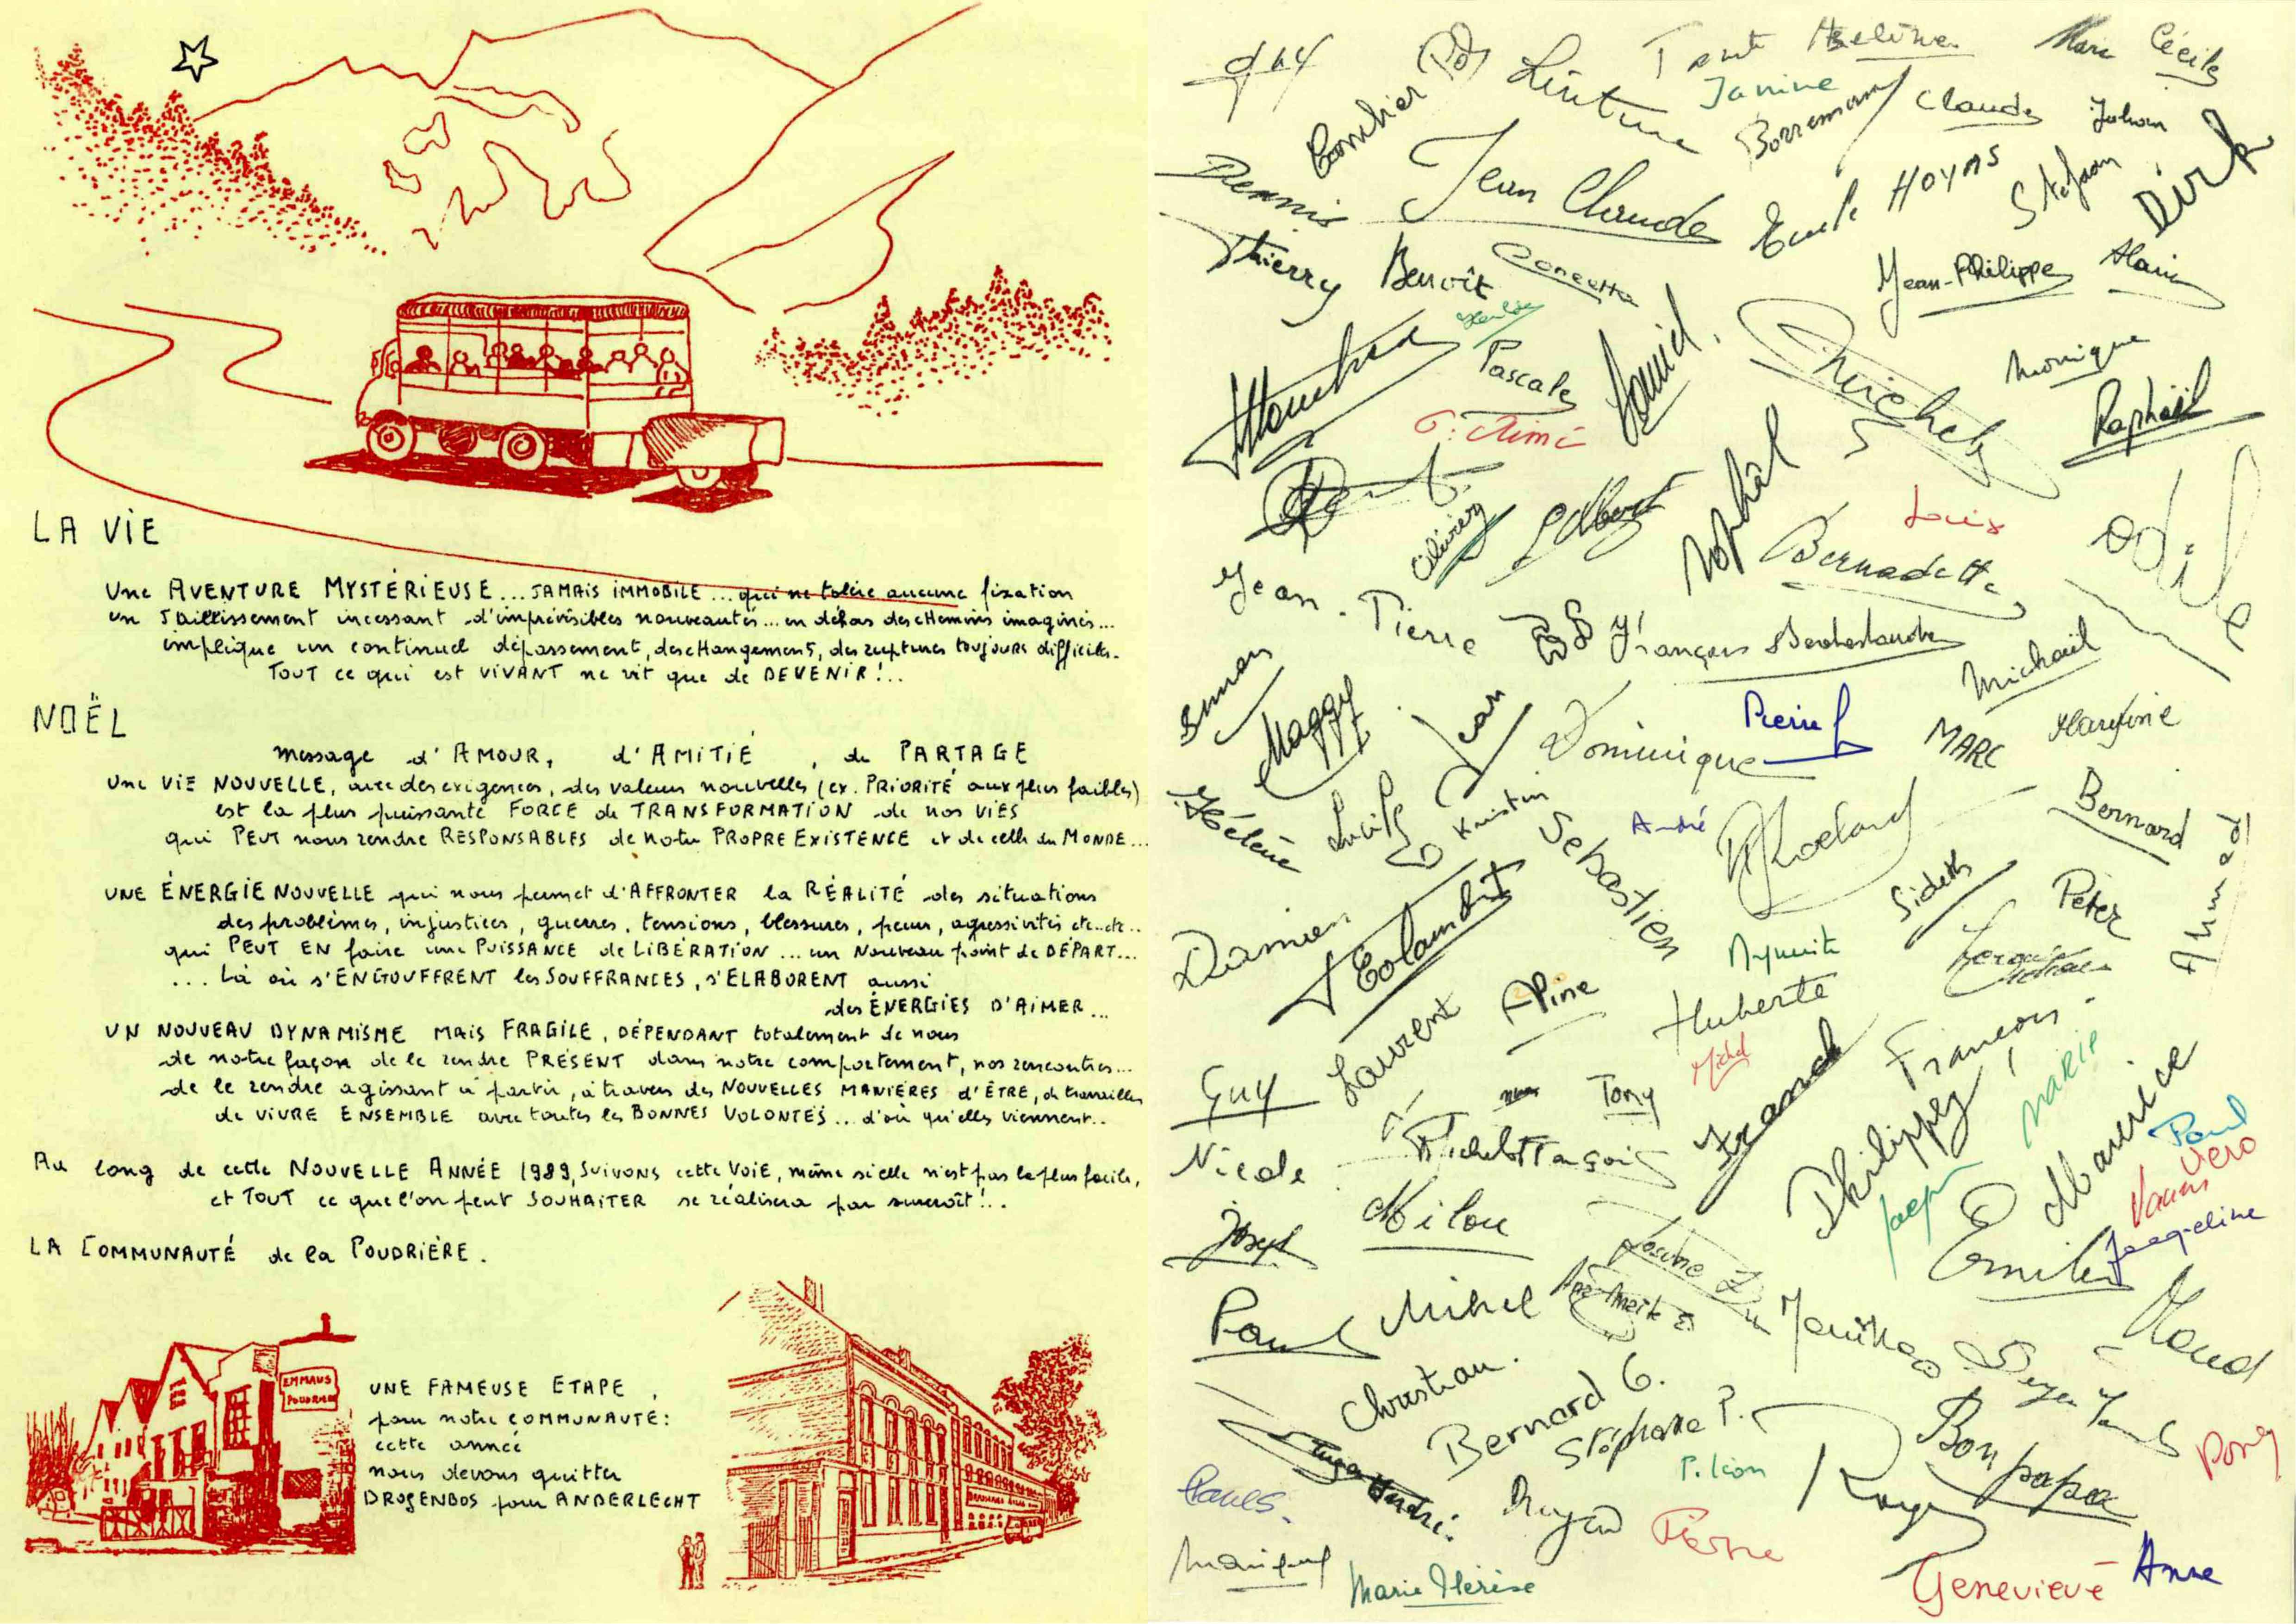 LA VIE
Une AVENTURE MYSTÉRIEUSE... JAMAIS IMMOBILE... qui ne tolère aucune fixation
un JAILLISSEMENT incessant d'imprévisibles nouveautés... en dehors des cHemins imaginés...
implique un continuel dépassement, des cHangements, des ruptures toujours difficiles.
TOUT ce qui est VIVANT ne vit que de DEVENIR!..
NOËL
message d'AMOUR, d'AMITIÉ, de PARTAGE
Une VIE NOUVELLE, avec des exigences, des valeurs nouvelles (ex. PRIORITÉ aux plus faibles)
est la plus puissante FORCE de TRANSFORMATION de nos VIES
qui PEUT nous rendre RESPONSABLES de notre PROPRE EXISTENCE et de celle du MONDE...
UNE ÉNERGIE NOUVELLE qui nous permet d'AFFRONTER la RÉALITÉ des situations
des problèmes, injustices, guerres, tensions, blessures, peurs, agressivités etc..etc..
qui PEUT EN faire une PUISSANCE de LIBÉRATION... un Nouveau point de DÉPART...
... Là où s'ENGOUFFRENT les SOUFFRANCES, s'ÉLABORENT aussi
des ÉNERGIES D'AIMER...
UN NOUVEAU DYNAMISME MAIS FRAGILE, DÉPENDANT totalement de nous
de notre façon de le rendre PRÉSENT dans notre comportement, nos rencontres...
de le rendre agissant à partir, à travers des NOUVELLES MANIÈRES d'ÊTRE, de travailler
de VIVRE ENSEMBLE avec toutes les BONNES VOLONTÉS... d'où qu'elles viennent..
Au long de cette NOUVELLE ANNÉE 1989, SUIVONS cette VOIE, même si elle n'est pas la plus facile,
et TOUT ce que l'on peut SOUHAITER se réalisera par surcroît!..
LA COMMUNAUTÉ de la POUDRIÈRE.
EMMAUS
POUDRIERE
UNE FAMEUSE ETAPE,
pour notre COMMUNAUTÉ:
cette année
nous devons quitter
DROGENBOS pour ANDERLECHT
Guy
Hélène
Marc
Cécile
Janine
Borremans
Claude
Johan
Dennis
Jean Claude
Emile HOYAS
Stefaan
Dirk
Thierry
Benoît
Concetta
Jean-Philippe
Alain
Pascale
David.
Michel
Monique
Raphaël
P. Aimé
Olivier
Gilbert
Sophal
Louis
Bernadette
Odile
Jean-Pierre
François
Michaël
Simon
Maggy
Jean
Dominique
Pierre
MARC
Martine
Hélène
Lucile
Kristin
Sebastien
André
Bernard
Ahmed
Damien
Sideth
Peter
Laurent
Aline
Huberte
Michel
Guy
Tony
Franck
François
MARIE
Nicole
Michel François
Philippe
Maurice
Paul
Vero
Joseph
Milou
Jacqueline
Emile
Paul
Michel
Maud
Christian.
Bernard G.
Stéphane P.
P. Léon
Roger
Bon papa
Pony
Pierre
Marie Thérèse
Geneviève
Anne